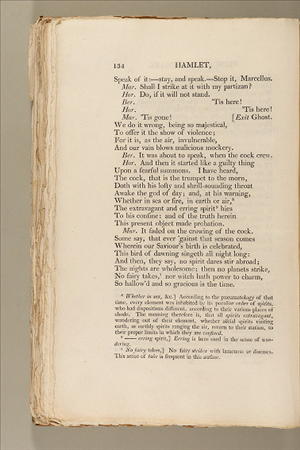 134 HAMLET,
Speak of it:—stay, and speak.—Stop it, Marcellus.
Mar. Shall I strike at it with my partizan?
Hor. Do, if it will not stand.
Ber. 'Tis here!
Hor. 'Tis here!
Mar. 'Tis gone! [Exit Ghost.
We do it wrong, being so majestical,
To offer it the show of violence;
For it is, as the air, invulnerable,
And our vain blows malicious mockery.
Ber. It was about to speak, when the cock crew.
Hor. And then it started like a guilty thing
Upon a fearful summons. I have heard,
The cock, that is the trumpet to the morn,
Doth with his lofty and shrill-sounding throat
Awake the god of day; and, at his warning,
Whether in sea or fire, in earth or air,
The extravagant and erring spirit hies
To his confine: and of the truth herein
This present object made probation.
Mar. It faded on the crowing of the cock.
Some say, that ever 'gainst that season comes
Wherein our Saviour's birth is celebrated,
This bird of dawning singeth all night long:
And then, they say, no spirit dares stir abroad;
The nights are wholesome; then no planets strike,
No fairy takes, nor witch hath power to charm,
So hallow'd and so gracious is the time.
Whether in sea, &c.] According to the pneumatology of that
time, every element was inhabited by its peculiar order of spirits,
who had dispositions different, according to their various places of
abode. The meaning therefore is, that all spirits extravagant,
wandering out of their element, whether aërial spirits visiting
earth, or earthly spirits ranging the air, return to their station, to
their proper limits in which they are confined.
—— erring spirit,] Erring is here used in the sense of wan-
dering.
No fairy takes,] No fairy strikes with lameness or diseases.
This sense of take is frequent in this author.